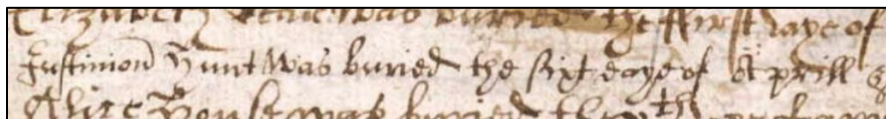 Elizabeth was buried the ffirst daye of
Justinion Hunt was buried the sixt daye of Aprill
Alice House was buried the